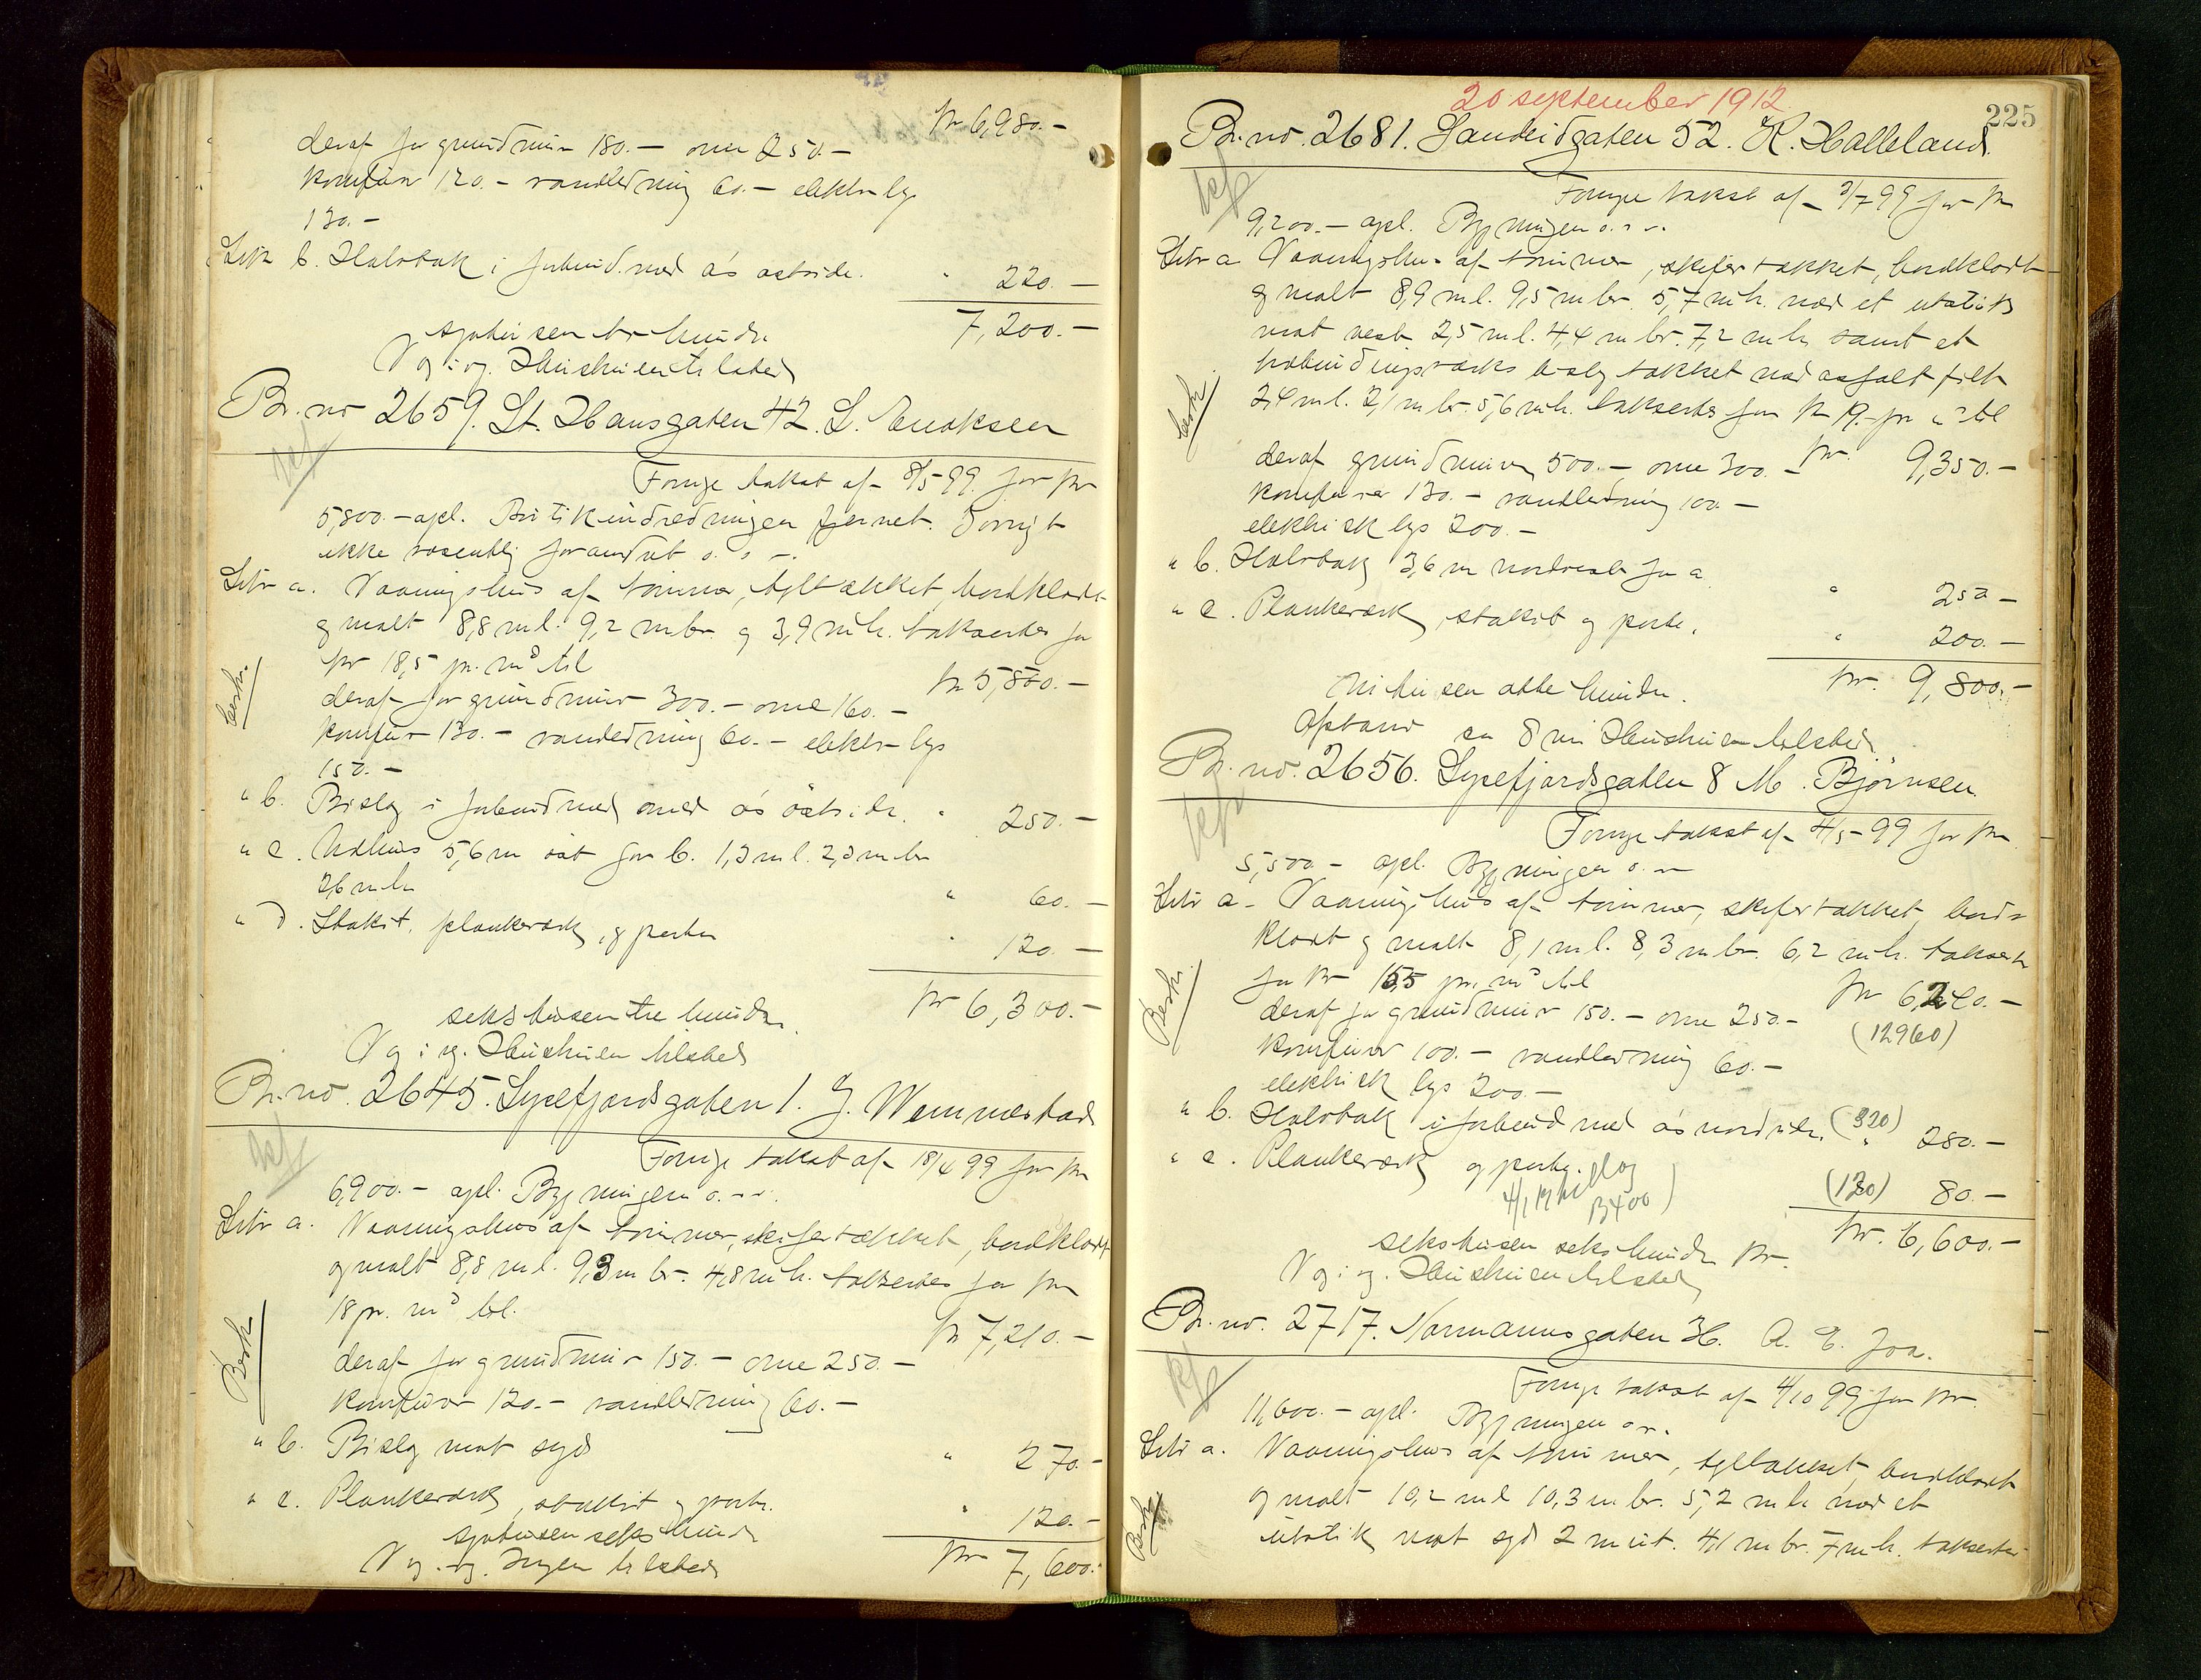 kr 6,980.-
deraf for grundmur 180.- ovne 250.-
komfur 120.- vandledning 60.- elektr. lys
130.-
Litr b. Halvtak i forbind. med a's østside. " 220.-
7,200.-
syvtusen to hundr.
V og i og. Huseieren tilstede
Br. no 2659. St. Hansgaten 42. L. Enoksen
Forrige takst af 8/5-99 for kr
5,800.- opl. Butikindredningen fjernet. Forøvrigt
ikke væsentlig forandret o. s. v.
Litr a. Vaaningshus af tømmer, tegltækket, bordklædt
og malt 8,8 m l. 9,2 m br. og 3,9 m h. takseres for
kr 18,5 pr. m³ til
kr 5,850.-
deraf for grundmur 300.- ovne 160.-
komfur 130.- vandledning 60.- elektr. lys
150.-
Beskr.
" b. Bislag i forbind med a's østside. " 250.-
" c. Udhus 5,6 m øst for b. 1,3 m l. 2,3 m br
2,6 m h " 60.-
" d. Stakit, plankeværk, og porter " 120.-
kr 6,300.-
sekstusen tre hundr.
V og i og. Huseieren tilstede
Br. no. 2645. Lysefjordsgaten 1. J. Wemmestad
Forrige takst af 18/4 99 for kr
6,900.- opl. Bygningen o.s.v.
Litr a. Vaaningshus af tømmer, skifertækket, bordklædt
og malt 8,8 m l. 9,3 m br. 4,8 m h. takseres for kr
18 pr. m³ til.
kr 7,210.-
Beskr
deraf for grundmur 150.- ovne 250.-
komfurer 120.- vandledning 60.-
" b. Bislag mot syd " 270.-
" c. Plankeværk, stakit og porte. " 120.-
syvtusen seks hundr
kr 7,600.-
V og. og. Ingen tilstede
20 september 1912
225
Br. no. 2681. Sandeidgaten 52. K. Halleland.
Forrige takst af 3/7 99 for kr
9,200.- opl. Bygningen o. s. v.
Litr a Vaaningshus af tømmer, skifertækket, bordklædt
og malt 8,9 m l. 9,5 m br. 5,7 m h. med et utstik
mot vest 2,5 m l. 4,4 m br. 7,2 m h samt et
utbindingsværks bislag tækket med asfalt filt
2,4 m l. 2,1 m br. 5,6 m h. takseres for kr 19.- pr m³ til
Beskr.
kr. 9,350.-
deraf grundmuren 500.- ovne 300.-
komfurer 130.- vandledning 100.-
elektrisk lys 200.-
" b. Halvtak 3,6 m nordvest for a " 250.-
" c. Plankeværk, stakit og porte. " 200.-
kr. 9,800.-
nitusen otte hundr.
Afstand ca 8 m Huseieren tilstede
Br. no. 2656. Lysefjordsgaten 8 M. Bjørnsen.
Forrige takst af 4/5-99 for kr
5,500.- opl. Bygningen o. s. v.
Litr a. Vaaningshus af tømmer, skifertækket, bord-
klædt og malt 8,1 m l. 8,3 m br. 6,2 m h. takseres
for kr 15,5 pr. m³ til
kr 6,240.-
(12960)
Beskr.
deraf for grundmur 150.- ovne 250.-
komfurer 100.- vandledning 60.-
elektrisk lys 200.-
" b. Halvtak i forbind med a's nordside. (320) " 280.-
" c. Plankeværk og porte. (120) 80.-
13400)
kr. 6,600.-
sekstusen seks hundr kr.
V og i og. Huseieren tilstede
Br. no. 2717. Normannsgaten 36. A. E. Joa.
Forrige takst af 4/10 99 for kr.
11,600.- opl. Bygningen o. v.
Litr a. Vaaningshus af tømmer, tegltækket, bordklædt
og malt 10,2 m l 10,3 m br. 5,2 m h med et
utstik mot syd 2 m ut. 4,1 m br. 7 m h. takseres
Beskr.